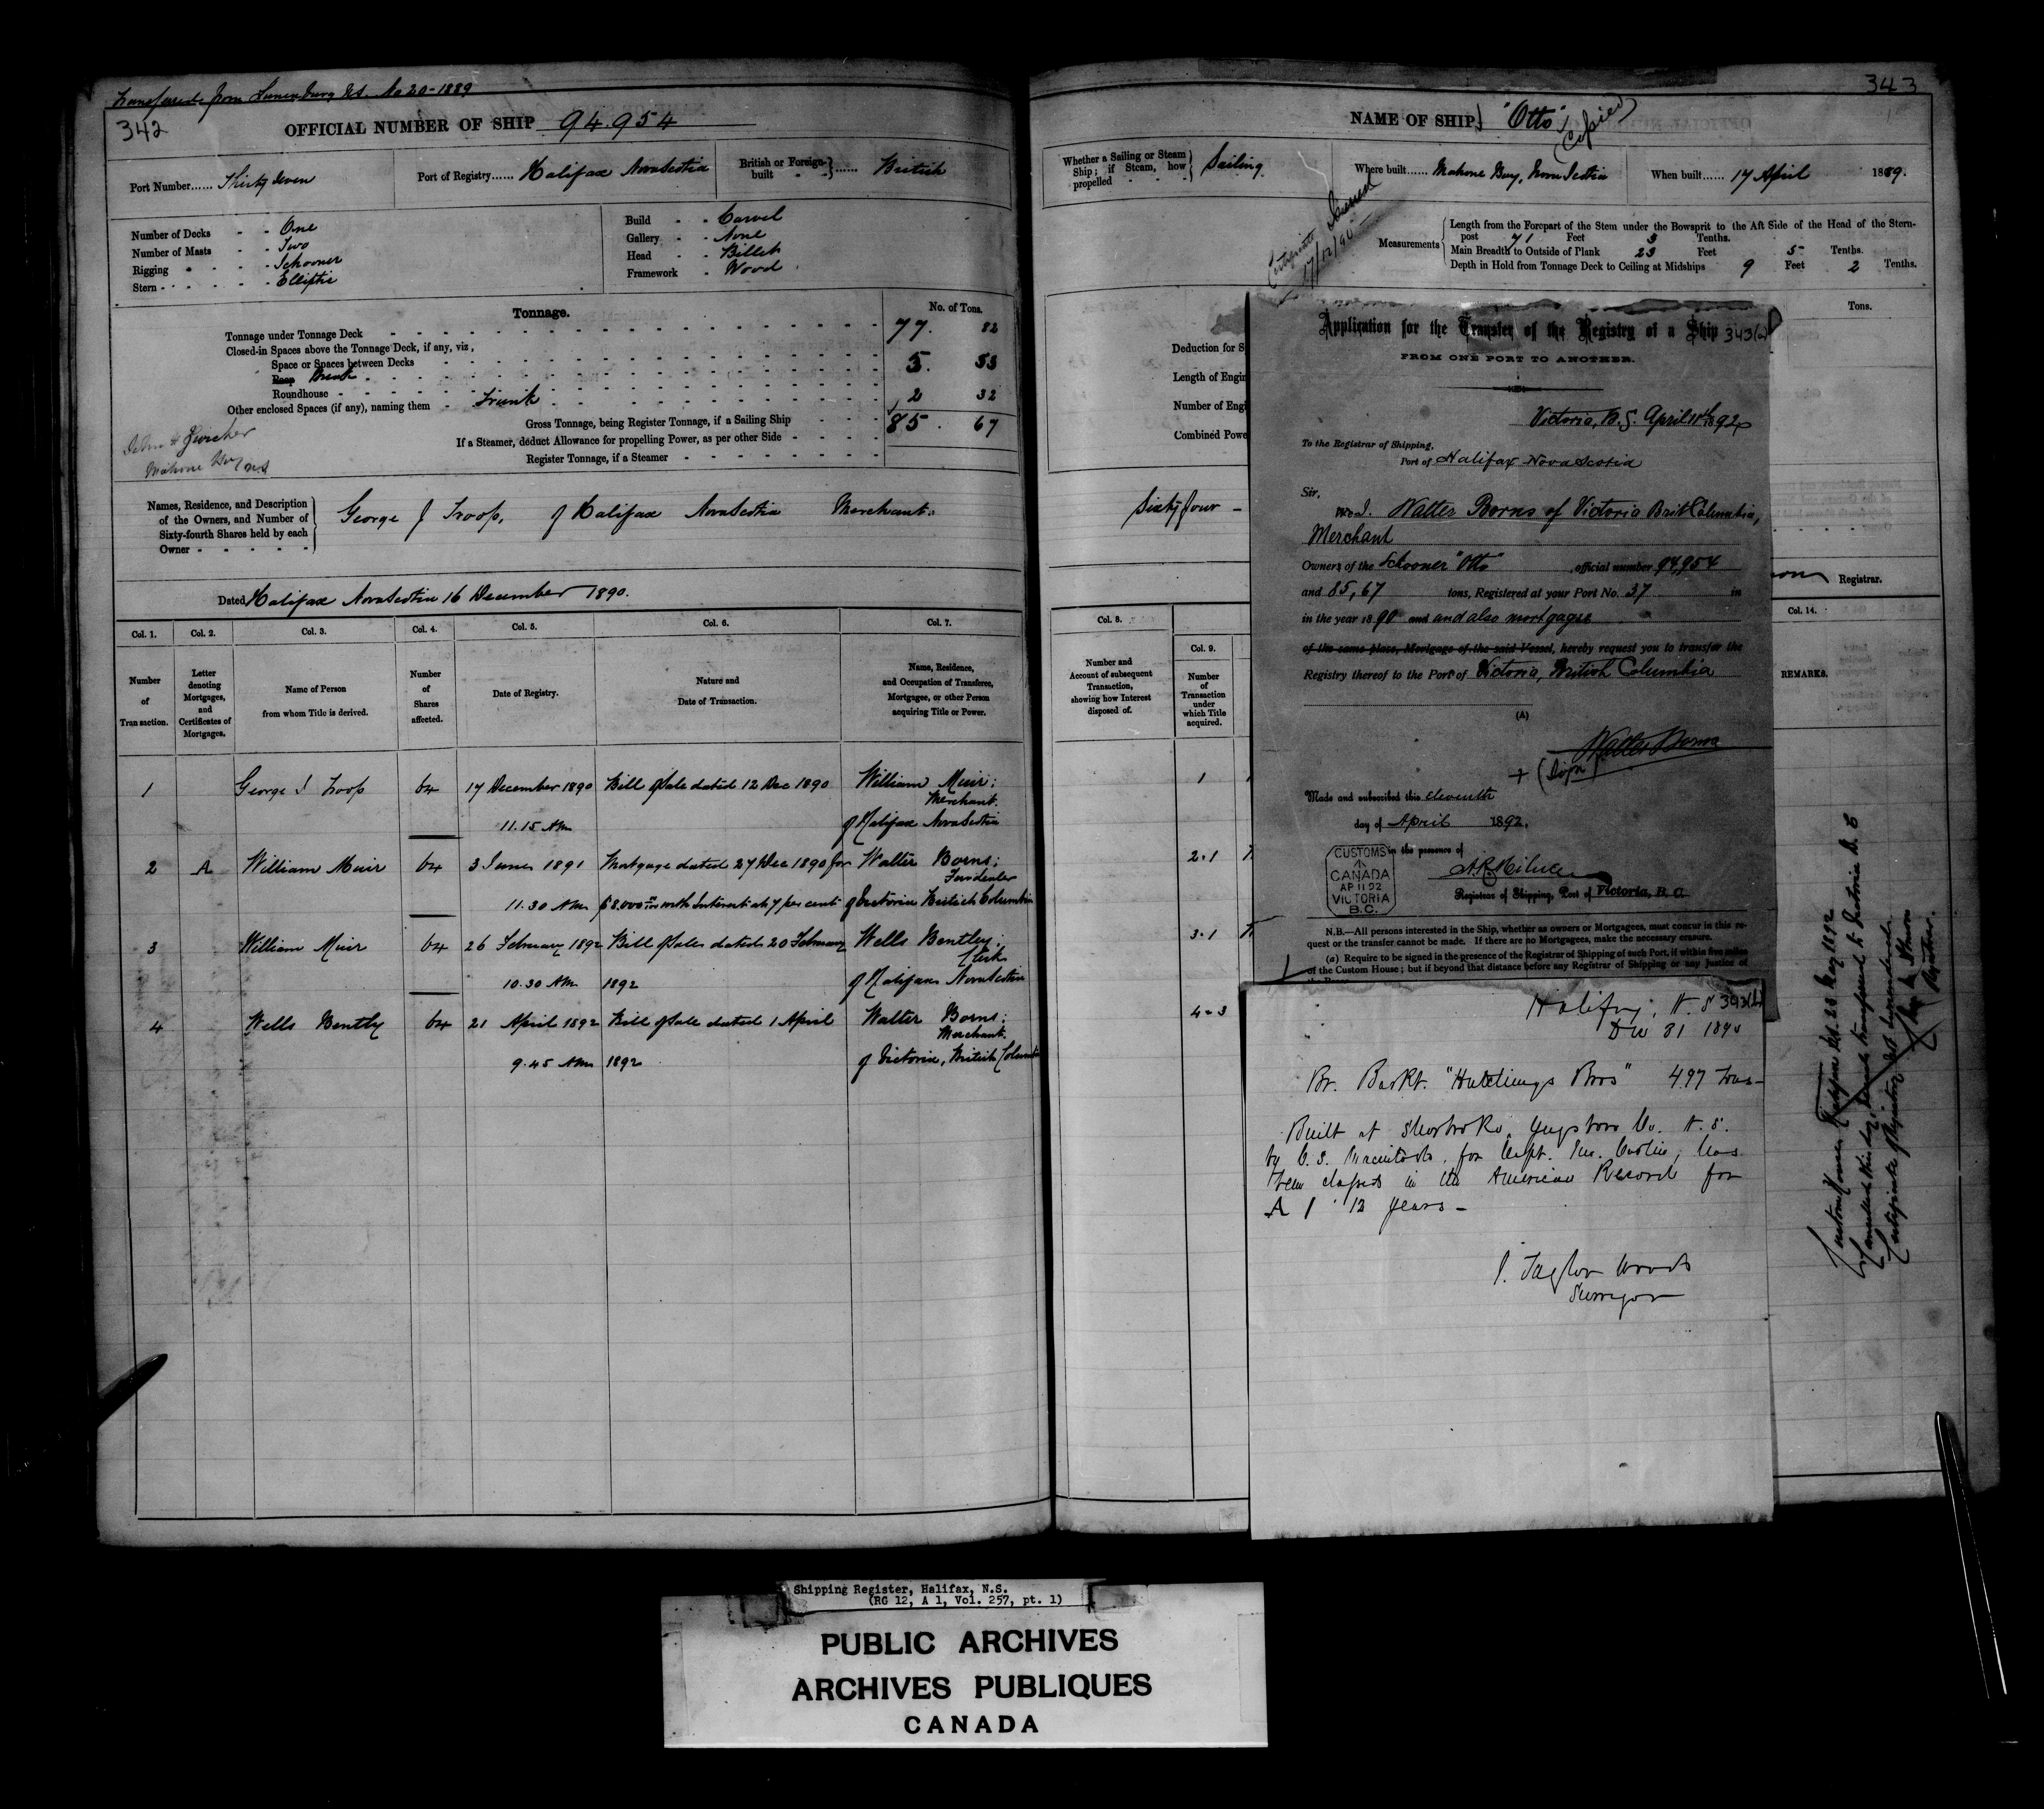 Transferred from Lunenburg N.S. No 20-1889
342
OFFICIAL NUMBER OF SHIP 94.954
Port Number...... Thirty Seven
Port of Registry...... Halifax Nova Scotia
British or Foreign built ...... British
Number of Decks - - One
Number of Masts - - Two
Rigging - - - Schooner
Stern - - - - Elliptic
Build - - Carvel
Gallery - - None
Head - - Billet
Framework - Wood
Tonnage.
No. of Tons.
Tonnage under Tonnage Deck 77. 82
Closed-in Spaces above the Tonnage Deck, if any, viz,
Space or Spaces between Decks
Poop Break 5. 53
Roundhouse
Other enclosed Spaces (if any), naming them - Trunk 2 32
Gross Tonnage, being Register Tonnage, if a Sailing Ship 85. 67
If a Steamer, deduct Allowance for propelling Power, as per other Side
Register Tonnage, if a Steamer
John H Zwicker
Mahone Bay N.S
Names, Residence, and Description
of the Owners, and Number of
Sixty-fourth Shares held by each
Owner
George J Troop, of Halifax Nova Scotia Merchant:
Dated Halifax Nova Scotia 16 December 1890.
Col. 1. Col. 2. Col. 3. Col. 4. Col. 5. Col. 6. Col. 7.
Number of Transaction.
Letter denoting Mortgages, and Certificates of Mortgages.
Name of Person from whom Title is derived.
Number of Shares affected.
Date of Registry.
Nature and Date of Transaction.
Name, Residence, and Occupation of Transferee, Mortgagee, or other Person acquiring Title or Power.
1 George J Troop 64 17 December 1890 Bill of Sale dated 12 Dec 1890 William Muir;
Merchant.
11.15 AM of Halifax Nova Scotia
2 A William Muir 64 3 June 1891 Mortgage dated 27 Dec 1890 for Walter Borns;
Furdealer
11.30 AM $8.000 with Interest at 7 per cent of Victoria British Columbia
3 William Muir 64 26 February 1892 Bill of Sale dated 20 February Wells Bentley;
Clerk
10.30 AM 1892 of Halifax Nova Scotia
4 Wells Bentley 64 21 April 1892 Bill of Sale dated 1 April Walter Borns;
Merchant.
9.45 AM 1892 of Victoria, British Columbia
343
NAME OF SHIP, "Otto"
(Copied)
Whether a Sailing or Steam Ship; if Steam, how propelled Sailing
Where built...... Mahone Bay, Nova Scotia
When built...... 17 April 1889.
Certificate Issued
17/12/90
Measurements
Length from the Forepart of the Stem under the Bowsprit to the Aft Side of the Head of the Stern-
post 71 Feet 3 Tenths.
Main Breadth to Outside of Plank 23 Feet 5 Tenths.
Depth in Hold from Tonnage Deck to Ceiling at Midships 9 Feet 2 Tenths.
Tons.
Deduction for S
Length of Engin
Number of Engi
Combined Powe
Sixty four -
Registrar.
Col. 8. Col. 9. Col. 14.
Number and Account of subsequent Transaction, showing how Interest disposed of.
Number of Transaction under which Title acquired.
REMARKS.
1
2.1
3.1
4-3
Application for the Transfer of the Registry of a Ship 343(a)
FROM ONE PORT TO ANOTHER.
Victoria, B.C. April 11th 1892
To the Registrar of Shipping,
Port of Halifax Nova Scotia
Sir,
We I. Walter Borns of Victoria Brit Columbia,
Merchant
Owners of the Schooner "Otto" , official number 94,954
and 85,67 tons, Registered at your Port No. 37 in
in the year 1890 and and also mortgagee
of the same place, Mortgage of the said Vessel, hereby request you to transfer the
Registry thereof to the Port of Victoria, British Columbia
(A)
Walter Borns
+ (Sign)
Made and subscribed this eleventh
day of April 1892.
in the presence of
A.R. Milne
Registrar of Shipping, Port of Victoria, B. C.
CUSTOMS
CANADA
AP 11 92
VICTORIA
B.C.
N.B.—All persons interested in the Ship, whether as owners or Mortgagees, must concur in this re-
quest or the transfer cannot be made. If there are no Mortgagees, make the necessary erasure.
(a) Require to be signed in the presence of the Registrar of Shipping of such Port, if within five miles
of the Custom House; but if beyond that distance before any Registrar of Shipping or any Justice of
Halifax, N.S 343(b)
Dec 31 1890
Br. Barkt. "Hutchings Bros" 497 Tons-
Built at Sherbrooke, Guysboro Co. N.S.
by C. S. Macintosh, for Capt. has
been classed in the American Record for
A 1 12 years -
J. Taylor Wood
Surveyor
Custom House Halifax NS. 23 May 1892
Cancelled this day, transferred to Victoria B.C
Certificate of Registry
Registrar.
Shipping Register, Halifax, N.S.
(RG 12, A 1, Vol. 257, pt. 1)
PUBLIC ARCHIVES
ARCHIVES PUBLIQUES
CANADA